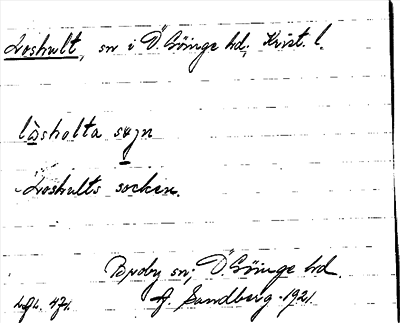 Loshult, sn i Ö. Göinge hd; Krist. l.
låsholta sogn
Loshults socken.
Broby sn; Ö. Göinge hd.
Sandberg 1921